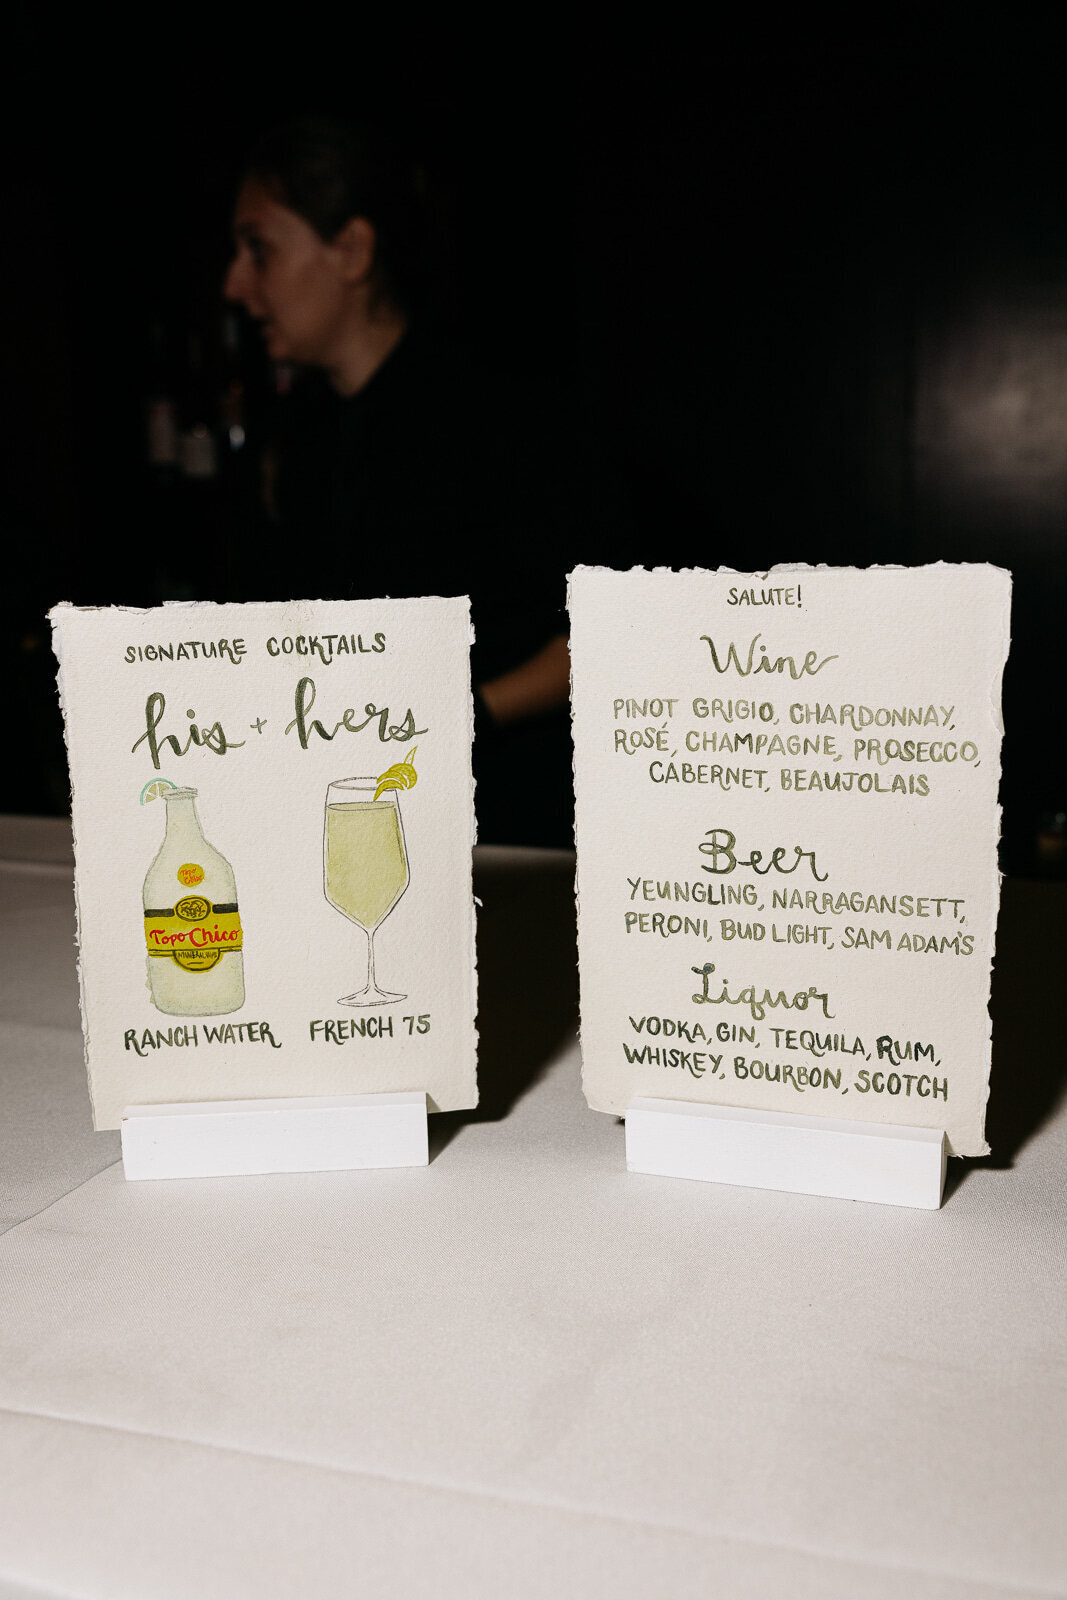 SIGNATURE COCKTAILS
his + hers
Topo Chico
Topo Chico
RANCH WATER
FRENCH 75
SALUTE!
Wine
PINOT GRIGIO, CHARDONNAY,
ROSÉ, CHAMPAGNE, PROSECCO,
CABERNET, BEAUJOLAIS
Beer
YEUNGLING, NARRAGANSETT,
PERONI, BUD LIGHT, SAM ADAM'S
Liquor
VODKA, GIN, TEQUILA, RUM,
WHISKEY, BOURBON, SCOTCH